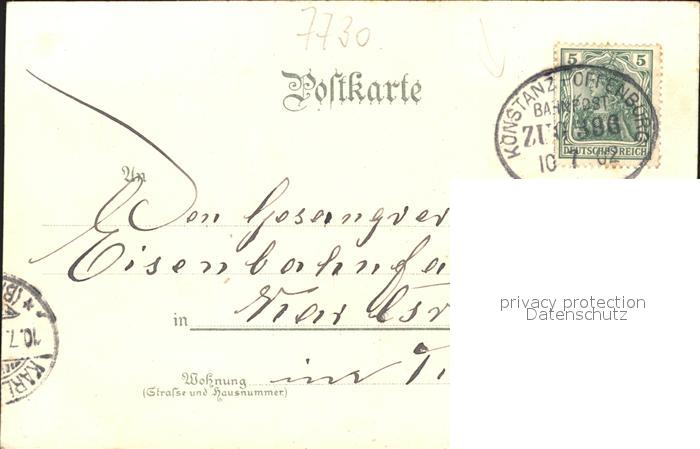 7730.
Postkarte
5 5
DEUTSCHES REICH
KONSTANZ - OFFENBURG
BAHNPOST
ZUG 396
10 7 02
An
Den Gesangver
Eisenbahnfa
in Karlsr
Wohnung
(Strasse und Hausnummer)
im
10.7.
KARL
privacy protection
Datenschutz